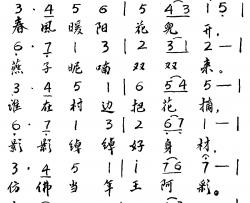 3 · 4 5 6 | 5 4 3 | 1 5 |
春風暖阳花兒开，
6 · 7 1 3 | 2 3 1 | 2 — |
燕子呢喃双双来。
3 · 4 5 1 | 6 6 5 4 5 |
谁在村边把花摘，
6 · 7 1 3 | 2 6 7 | 1 — |
影影绰绰好身材，
3 · 4 5 1 | 1 7 6 | 7 — |
仿佛当年王阿彩。